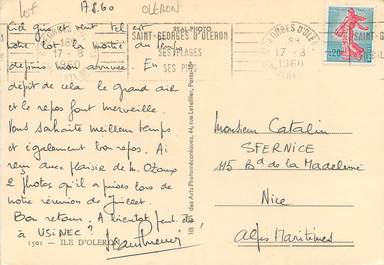 lot
17.8.60
OLERON
REAL-PHOTO
SAINT-GEORGES D'OLERON
SES PLAGES
SES PINS
18H
17-8
1960
ST GEORGES D'OLERON
17-8
1960
0,20
Ciel gris et vent tel est
notre lot la moitié du temps
depuis mon arrivée. En
dépit de cela le grand air
et le repos font merveille.
Vous souhaite meilleur temps
et également bon repos. Ai
reçu avec plaisir de M.
2 photos qu'il a prises lors de
notre réunion de Juillet.
Bon retour. A bientôt peut-être
à USINEC?
1501 - ILE D'OLERON
Les Arts Photomécaniques, 44, rue Letellier, Paris
Monsieur Catalin
SFERNICE
115 Bd de la Madeleine
Nice
Alpes Maritimes